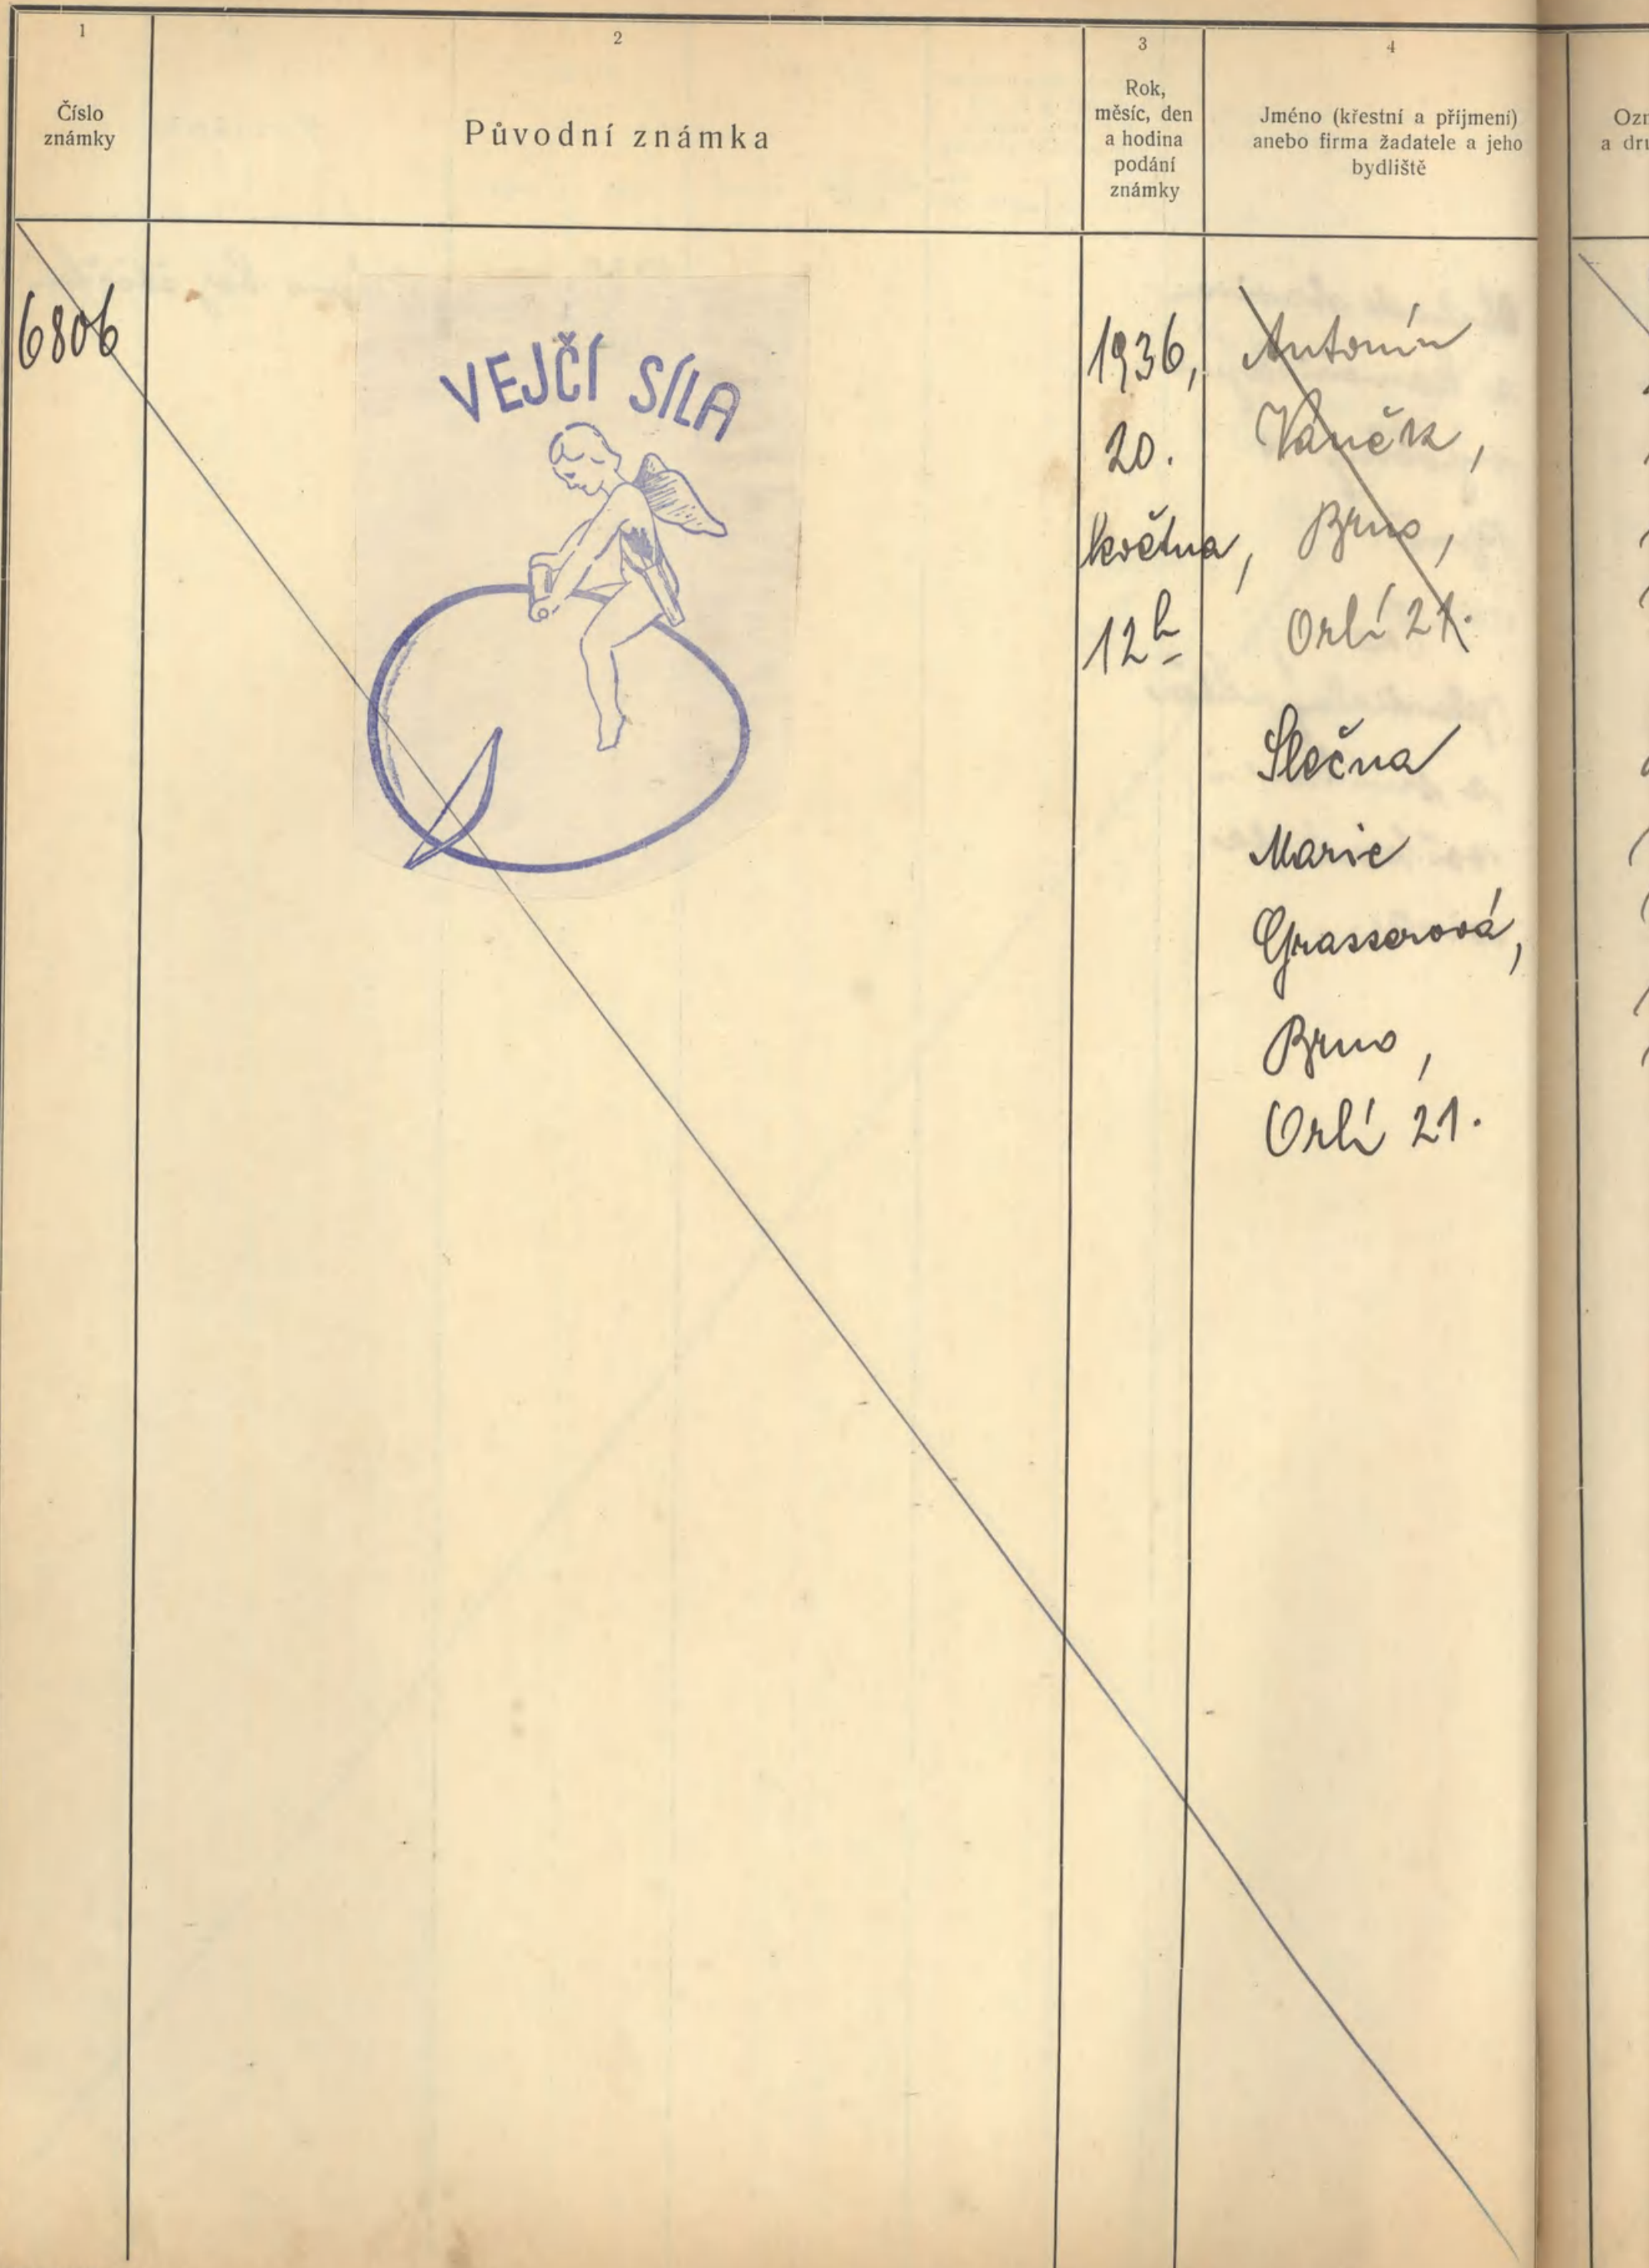 1
Číslo
známky
2
Původní známka
3
Rok,
měsíc, den
a hodina
podání
známky
4
Jméno (křestní a příjmení)
anebo firma žadatele a jeho
bydliště
6806
VEJČÍ SÍLA
1936,
20.
května,
12h
Antonín
Vaněk,
Brno,
Orlí 21.
Slečna
Marie
Grasserová,
Brno,
Orlí 21.